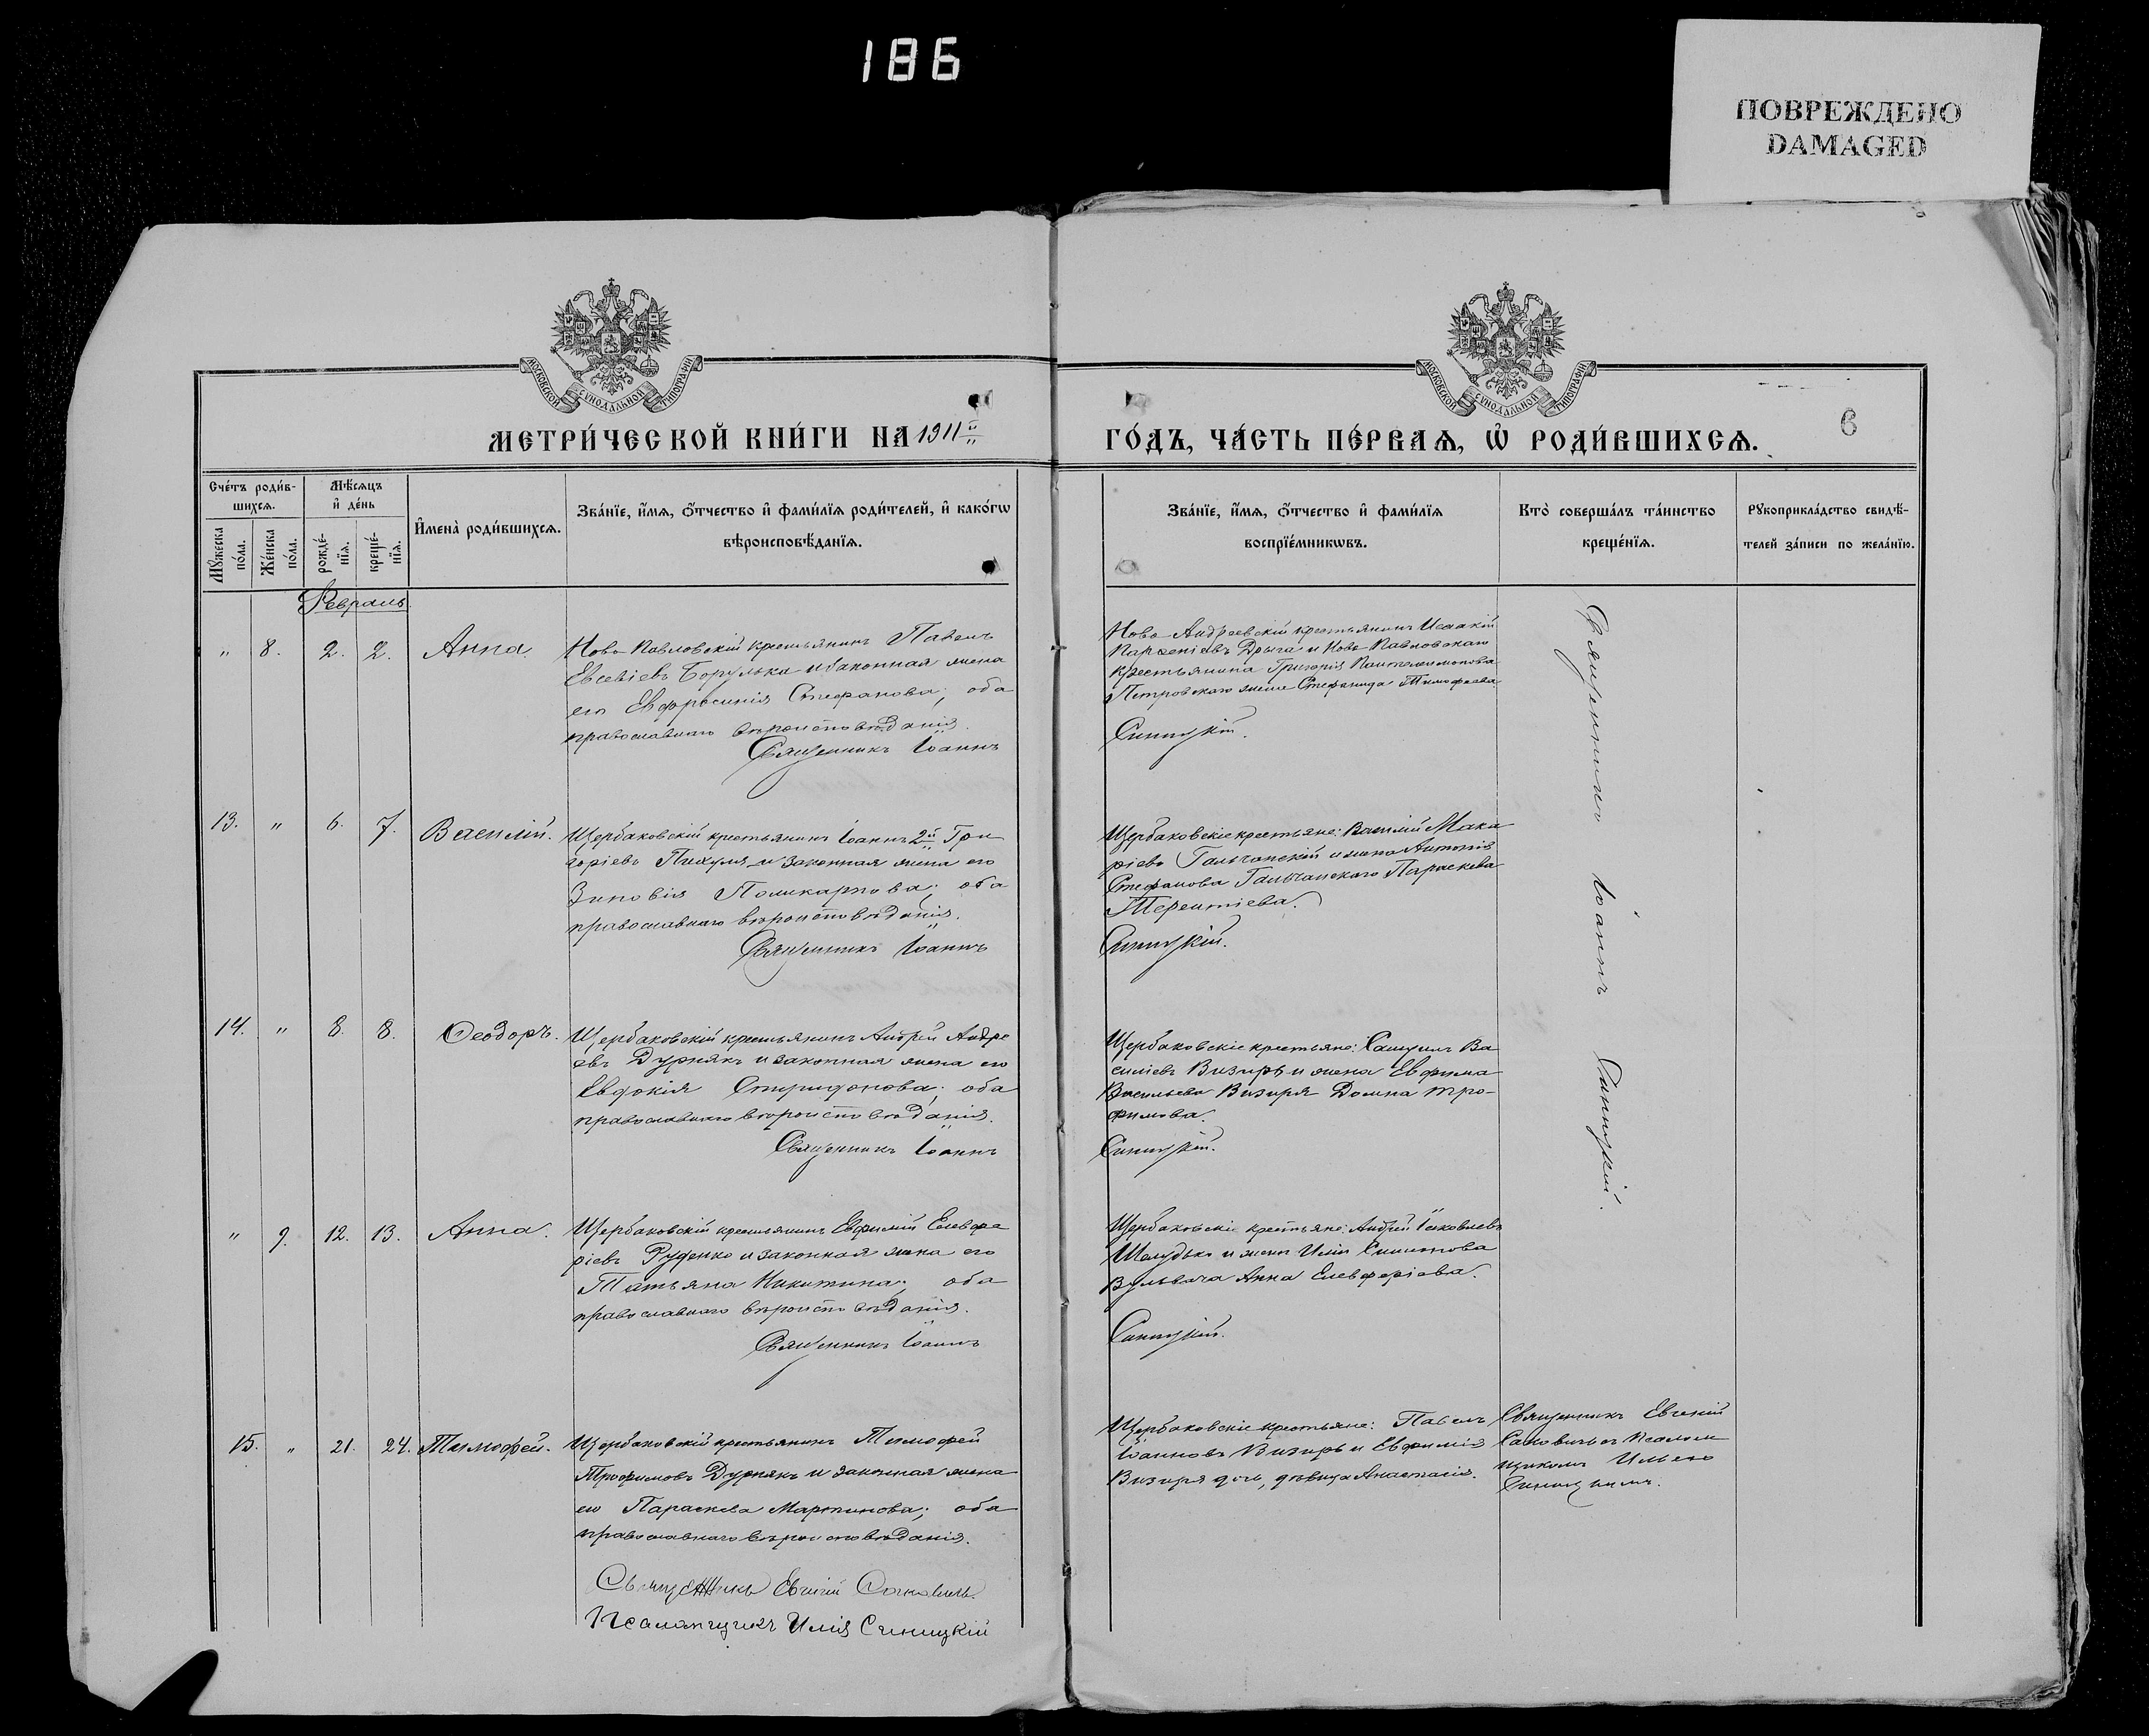 186
ПОВРЕЖДЕНО
DAMAGED
МОСКОВСКОЙ СѴНОДАЛЬНОЙ ТИПОГРАФІИ
МОСКОВСКОЙ СѴНОДАЛЬНОЙ ТИПОГРАФІИ
МЕТРИ́ЧЕСКОЙ КНИ́ГИ НА 1911й
ГО́ДЪ, ЧА́СТЬ ПЕ́РВАѦ, Ѡ҆ РОДИ́ВШИХСѦ.
6
Сче́тъ роди́в-
шихсѧ.
Мѣ́сѧцъ
и҆ де́нь
Мꙋ́жеска
по́ла.
Же́нска
по́ла.
рожде́-
нїѧ.
креще́-
нїѧ.
И҆мена̀ роди́вшихсѧ.
Зва́нїе, и҆́мѧ, ѻ҆́тчество и҆ фами́лїѧ роди́телей, и҆ како́гѡ
вѣроисповѣ́данїѧ.
Зва́нїе, и҆́мѧ, ѻ҆́тчество и҆ фами́лїѧ
воспрїе́мникѡвъ.
Кто̀ соверша́лъ та́инство
креще́нїѧ.
Рꙋкоприкла́дство свидѣ́-
телей за́писи по жела́нїю.
Февраль
" 8. 2. 2. Анна.
Ново Павловскій крестьянинъ Павелъ
Евсевіевъ Борулька и законная жена
его Евфросинія Стефанова; оба
православнаго вѣроисповѣданія.
Священникъ Іоаннъ
Ново Андреевскій крестьянинъ Исаакій
Парѳеніевъ Дрыга и Ново Павловскаго
крестьянина Григорія Пантелеимонова
Петровскаго жена Стефанида Тимофеева.
Синицкій.
13. " 6. 7. Василій.
Щербаковскій крестьянинъ Іоаннъ 2й Гри
горіевъ Пихуля и законная жена его
Зиновія Поликарпова; оба
православнаго вѣроисповѣданія.
Священникъ Іоаннъ
Щербаковскіе крестьяне: Василій Мака
ріевъ Гальчанскій и жена Антонія
Стефанова Гальчанскаго Параскева
Терентіева.
Синицкій.
14. " 8. 8. Ѳеодоръ.
Щербаковскій крестьянинъ Андрей Андре
евъ Дурнякъ и законная жена его
Евдокія Спиридонова; оба
православнаго вѣроисповѣданія.
Священникъ Іоаннъ
Щербаковскіе крестьяне: Самуилъ Ва
силіевъ Визирь и жена Ефима
Васильева Визиря Домна Тро-
фимова.
Синицкій.
" 9. 12. 13. Анна.
Щербаковскій крестьянинъ Евфимій Елевфе
ріевъ Руденко и законная жена его
Татьяна Никитина; оба
православнаго вѣроисповѣданія.
Священникъ Іоаннъ
Щербаковскіе крестьяне: Андрей Іаковлевъ
Шелудько и жена Иліи
Анна Елевферіева.
Синицкій.
15. " 21. 24. Тимофей.
Щербаковскій крестьянинъ Тимофей
Трофимовъ Дурнякъ и законная жена
его Параскева Мартинова; оба
православнаго вѣроисповѣданія.
Священникъ Евгеній
Псаломщикъ Илія Синицкій
Щербаковскіе крестьяне: Павелъ
Іоанновъ Визирь и Евфимія
Визиря дочь, дѣвица Анастасія.
Священникъ Іоаннъ Синицкій.
Священникъ Евгеній
съ Псалом
щикомъ Ильею
Синицкимъ.